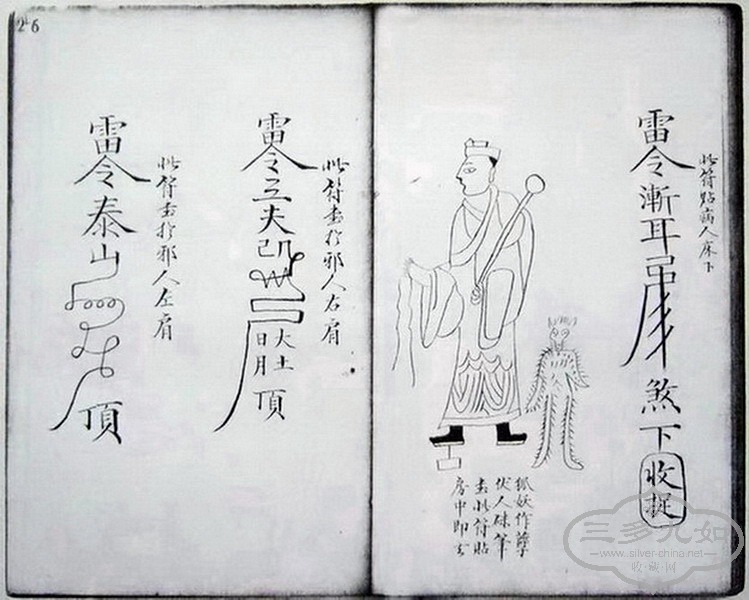 此符貼病人床下
雷令漸耳
煞下收捉
狐妖作孽
伏人硃筆
書此符貼
房中即去
此符書於邪人右肩
雷令
大土
日月
頂
此符書於邪人左肩
雷令泰山
頂
26
三多九如
www.silver-china.net
收·藏·网